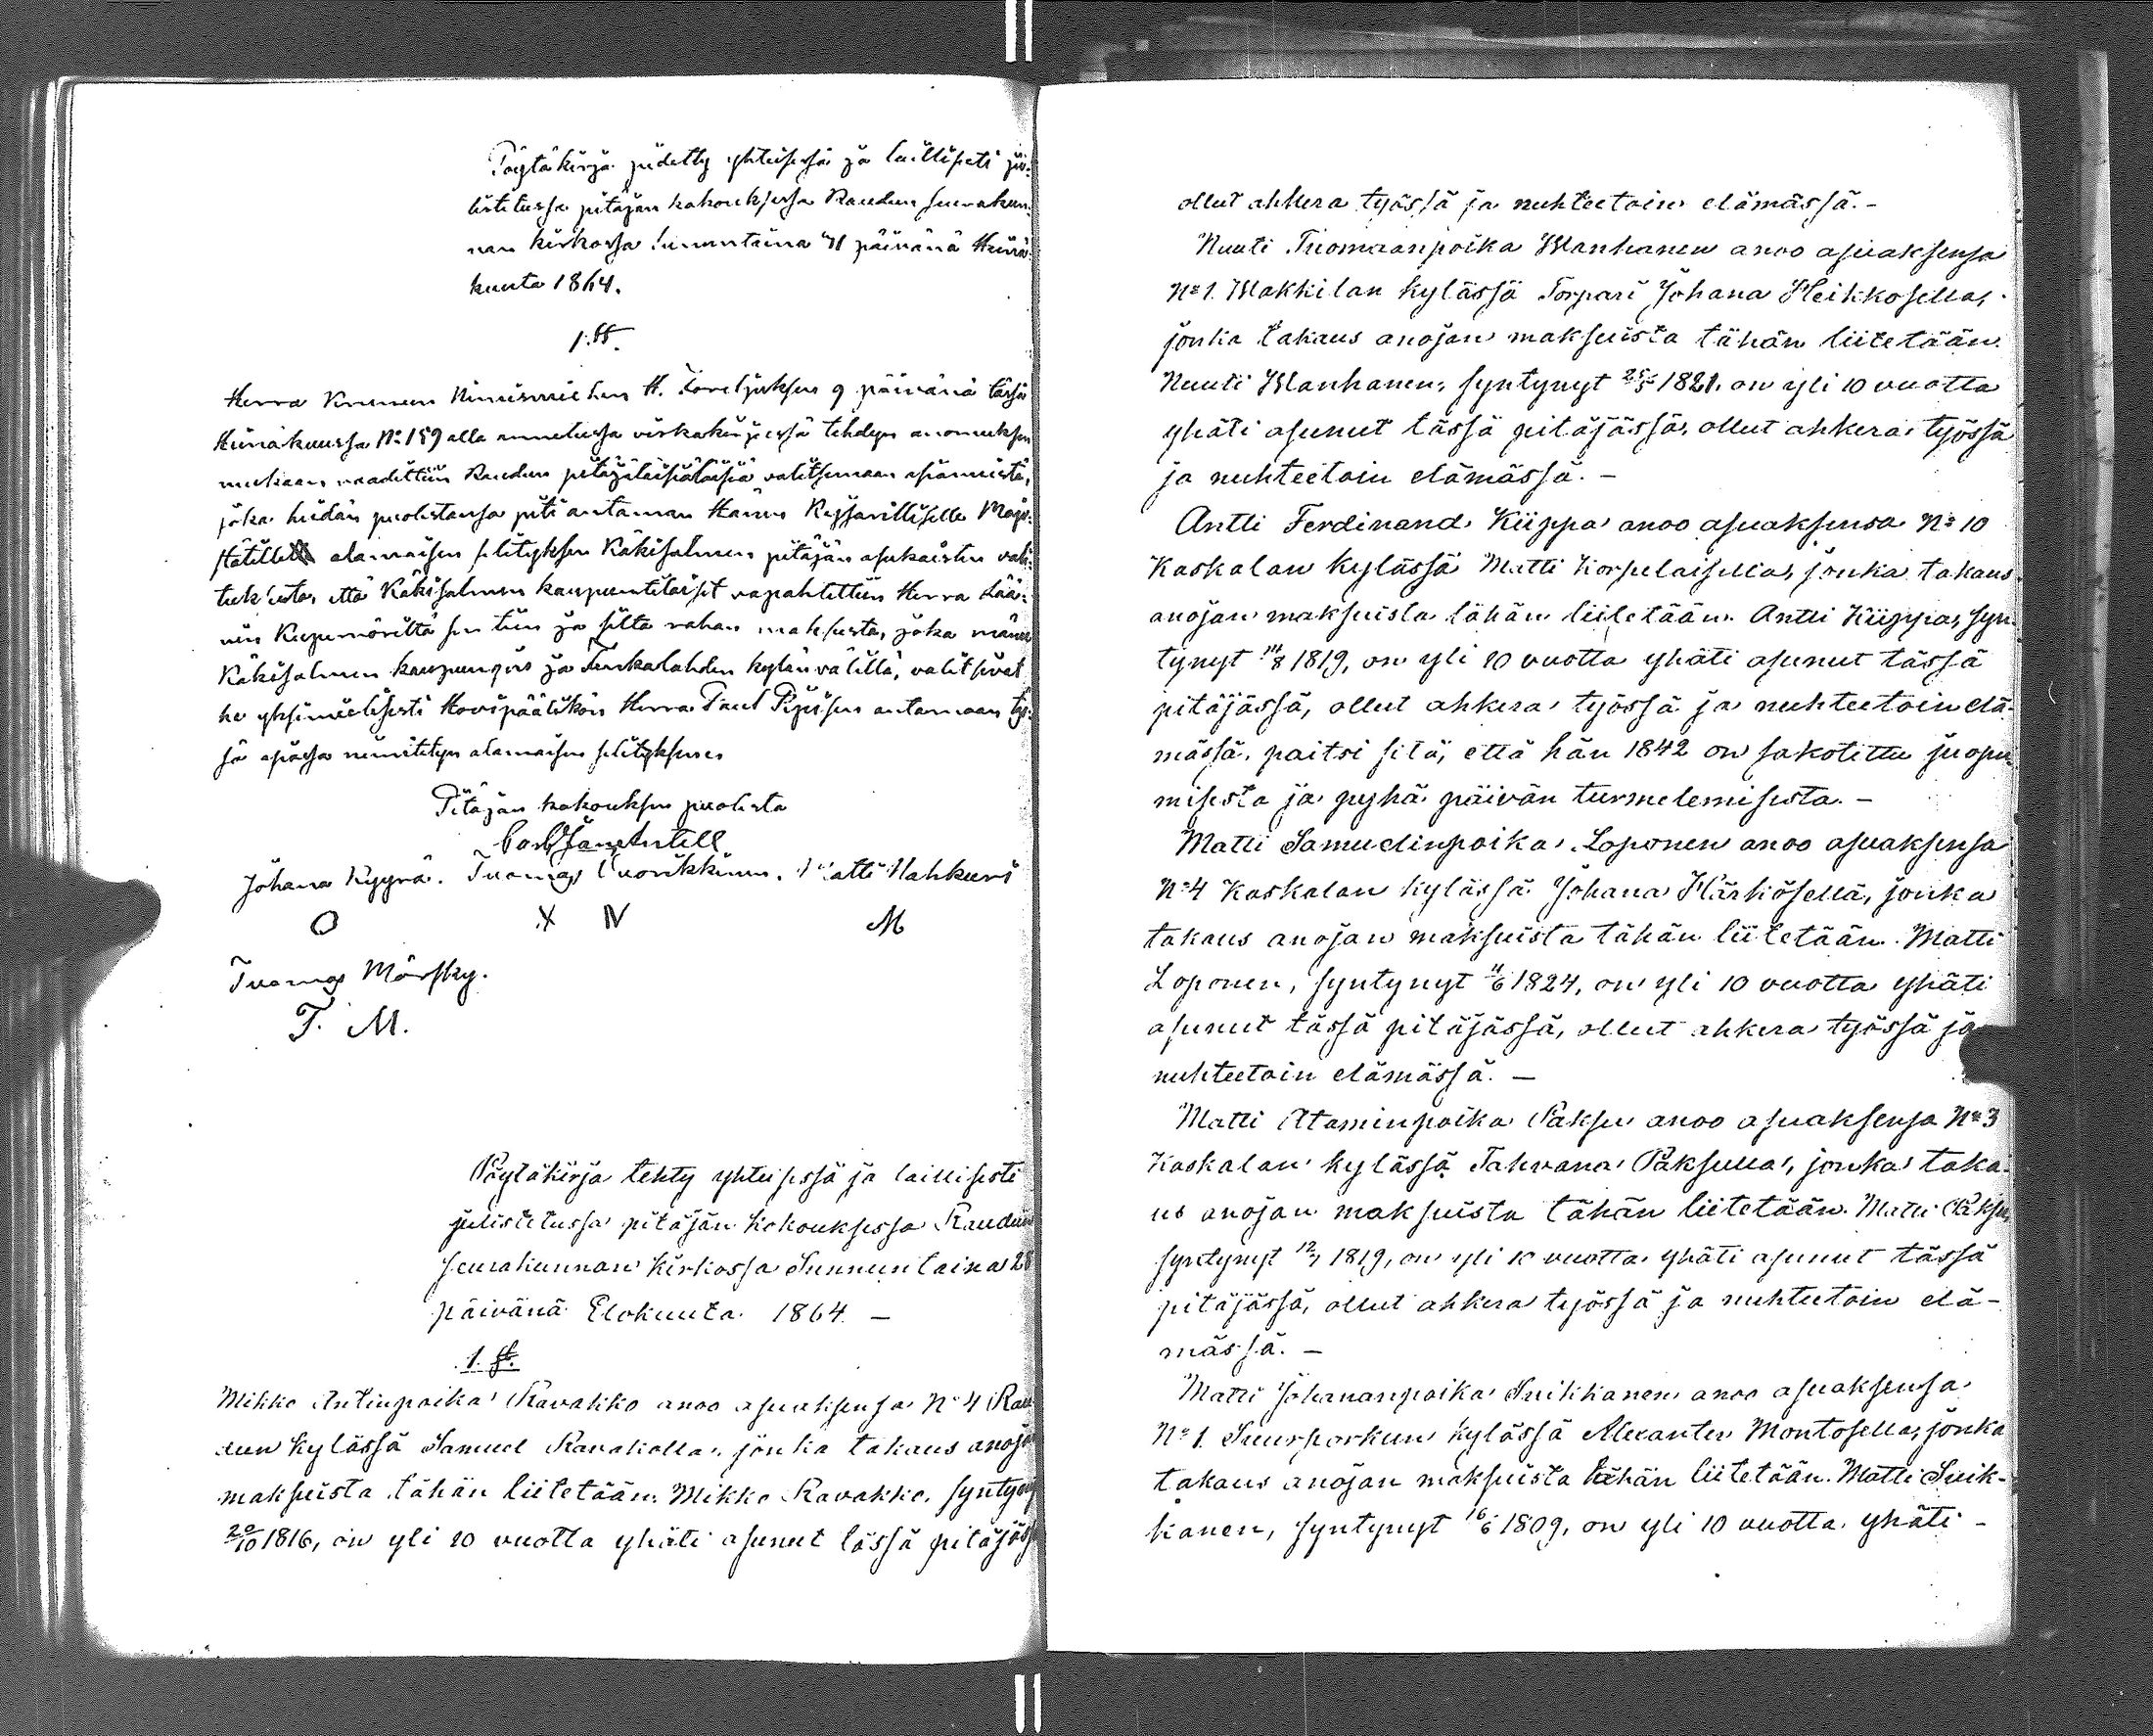 Pöytäkirja pidetty yhteisessä ja laillisesti ju-
listetussa pitäjän kokouksessa Raudun seurakun-
nan kirkossa Sunnuntaina 31 päivänä Heinä-
kuuta 1864.
1. §.
Herra Kruunun Nimismiehen H. päivänä tässä
Heinäkuussa No 159 alla annetussa virkakirjeessä tehdyn anomuksen
mukaan vaadittiin Raudun pitäjäläisiä valitsemaan asiamiestä,
joka heidän puolestansa piti antaman Hänen Keisarilliselle Maje-
stätille alamaisen selityksen Käkisalmen pitäjän asukasten vali-
tuksesta, että Käkisalmen kaupuntilaiset vapahdettiin Herra Lää-
nin Kuvernöriltä sen tien ja silta rahan maksusta, joka
Käkisalmen kaupungin ja kylän välillä, valitsivat
he yksimielisesti Hovipäälikön Herra Paul antamaan täs-
sä asiassa nimitetyn alamaisen selityksen
Pitäjän kokouksen puolesta
Carl Antell
Johana Kyyrä. Tuomas Vuorikkinen. Matti Hahkuri
O X IV M
Tuomas Mörsky.
T. M.
Pöytäkirja tehty yhteisessä ja laillisesti
julistetussa pitäjän kokouksessa Raudun
seurakunnan kirkossa Sunnuntaina 28
päivänä Elokuuta 1864. –
1. §.
Mikko Antinpoika Ravakko anoo asuaksensa No 4 Rau-
dun kylässä Samuel Ravakolla, jonka takaus anojan
maksuista tähän liitetään. Mikko Ravakko, syntynyt
20/10 1816, on yli 10 vuotta yhäti asunut tässä pitäjäss
ollut ahkera työssä ja nuhteetoin elämässä. –
Nuuti Tuomaanpoika Wanhanen anoo asuaksensa
No 1. Makkilan kylässä Torpari Johana Heikkosella,
jonka takaus anojan maksuista tähän liitetään.
Nuuti Wanhanen, syntynyt 1821, on yli 10 vuotta
yhäti asunut tässä pitäjässä, ollut ahkera työssä
ja nuhteetoin elämässä. –
Antti Ferdinand Kiippa anoo asuaksensa No 10
Kaskalan kylässä Matti Korpelaisella, jonka takaus
anojan maksuista tähän liitetään. Antti Kiippa, syn-
tynyt 14/8 1819, on yli 10 vuotta yhäti asunut tässä
pitäjässä, ollut ahkera työssä ja nuhteetoin elä-
mässä, paitsi sitä, että hän 1842 on sakotettu juopu-
misesta ja pyhä päivän turmelemisesta. –
Matti Samuelinpoika Loponen anoo asuaksensa
No 4 Kaskalan kylässä Johana Härkösellä, jonka
takaus anojan maksuista tähän liitetään. Matti
Loponen, syntynyt 11/6 1824, on yli 10 vuotta yhäti
asunut tässä pitäjässä, ollut ahkera työssä ja
nuhteetoin elämässä. –
Matti Ataminpoika Paksu anoo asuaksensa No 3
Kaskalan kylässä Tahvana Paksulla, jonka taka-
us anojan maksuista tähän liitetään. Matti Paksu,
syntynyt 12/7 1819, on yli 10 vuotta yhäti asunut tässä
pitäjässä, ollut ahkera työssä ja nuhteetoin elä-
mässä. –
Matti Johananpoika Suikkanen anoo asuaksensa
No 1. Suurporkun kylässä Alexanter Montosella, jonka
takaus anojan maksuista tähän liitetään. Matti Suik-
kanen, syntynyt 16/6 1809, on yli 10 vuotta yhäti –